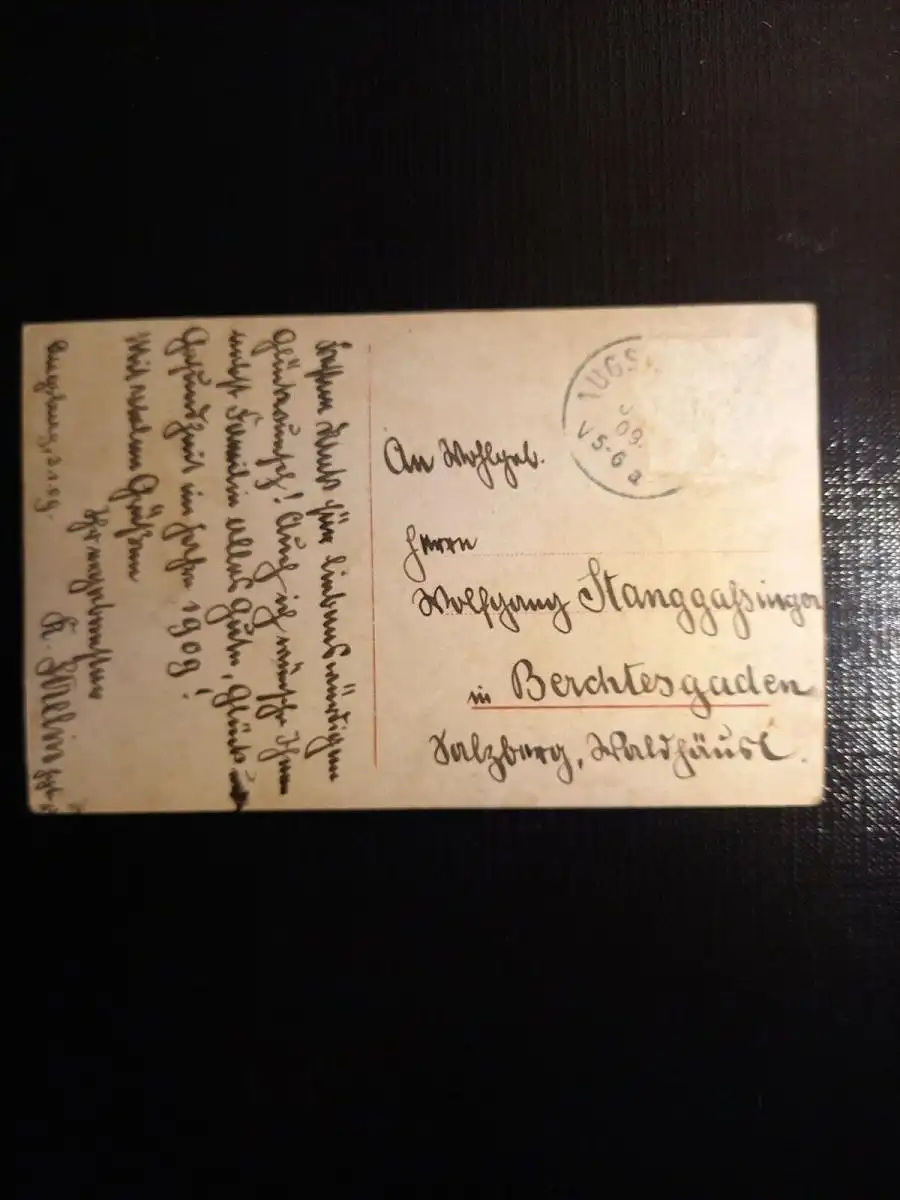 Besten Dank für liebenswürdigen
Glückwunsch! Auch ich wünsche Ihnen
nebst Familie alles Gute, Glück und
Gesundheit im Jahre 1909!
Mit vielen Grüßen
Ihr ergebenster
K.
Augsburg, 3.1.09.
AUGS
09.
V 5-6 a
An Wohlgeb.
Herrn
Wolfgang Stanggassinger
in Berchtesgaden
Salzberg, Waldhäusl.